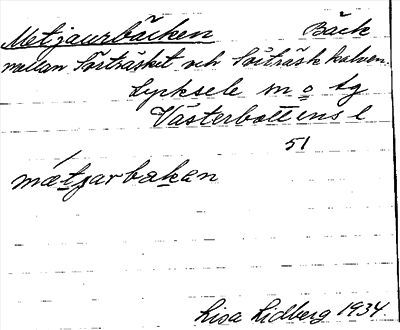 Metjaurbäcken Bäck
mellan Sörträsket och Sörträsk kalven.
Lycksele m o tg
Västerbottens l
51
mætjarbækan
Lisa Lidberg 1934.